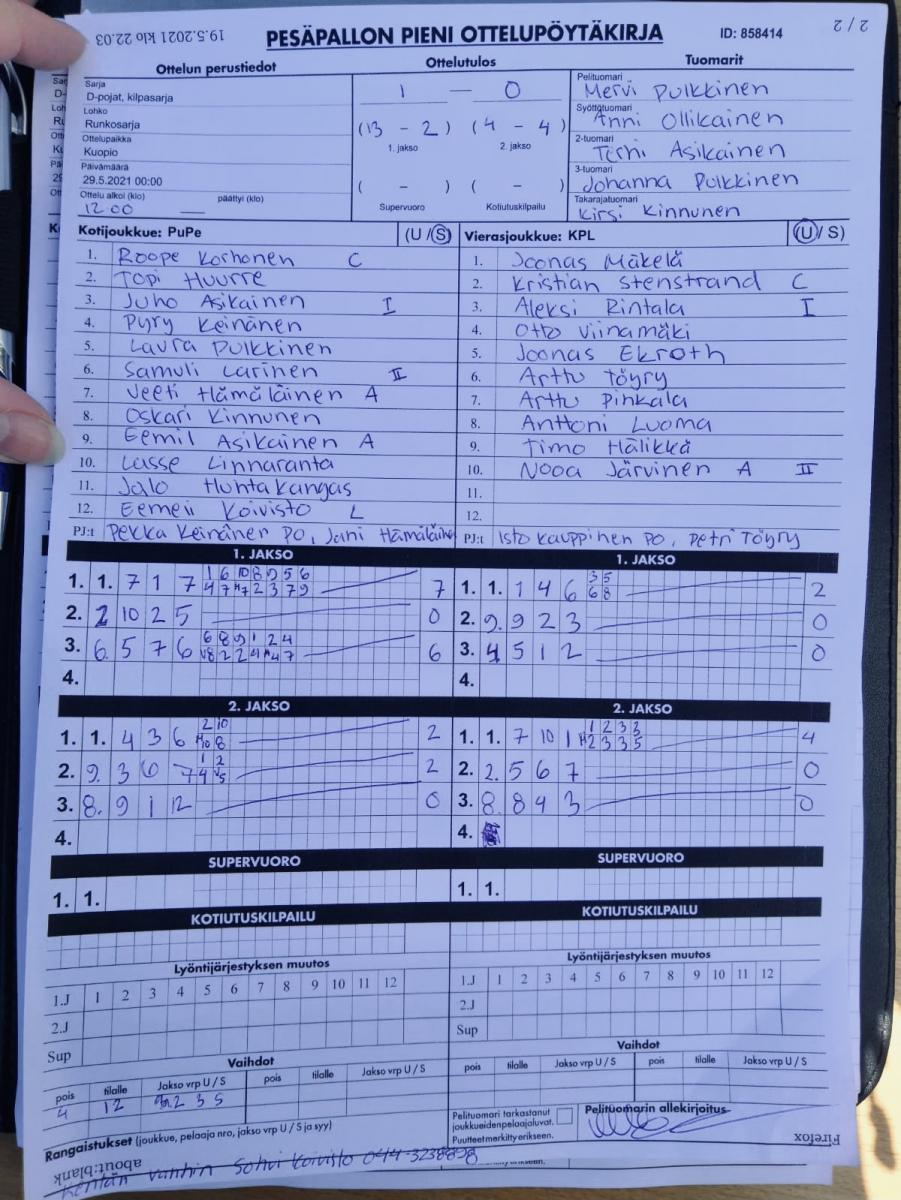 19.5.2021 klo 22.03
PESÄPALLON PIENI OTTELUPÖYTÄKIRJA
ID: 858414
2 / 2
Ottelun perustiedot
Ottelutulos
Tuomarit
Sarja
D-pojat, kilpasarja
Lohko
Runkosarja
Ottelupaikka
Kuopio
Päivämäärä
29.5.2021 00:00
Ottelu alkoi (klo) päättyi (klo)
12.00
1 — 0
(13 - 2) (4 - 4)
1. jakso 2. jakso
( - ) ( - )
Supervuoro Kotiutuskilpailu
Pelituomari
Mervi Pulkkinen
Syöttötuomari
Anni Ollikainen
2-tuomari
Terhi Asikainen
3-tuomari
Johanna Pulkkinen
Takarajatuomari
Kirsi Kinnunen
Kotijoukkue: PuPe (U / S)
1. Roope Korhonen C
2. Topi Huurre
3. Juho Asikainen I
4. Pyry Keinänen
5. Laura Pulkkinen
6. Samuli Larinen II
7. Veeti Hämäläinen A
8. Oskari Kinnunen
9. Eemil Asikainen A
10. Lasse Linnaranta
11. Jalo Huhtakangas
12. Eemeli Koivisto L
PJ:t Pekka Keinänen PO, Jani Hämäläinen
Vierasjoukkue: KPL (U / S)
1. Joonas Mäkelä
2. Kristian Stenstrand C
3. Aleksi Rintala I
4. Otto Viinamäki
5. Joonas Ekroth
6. Arttu Töyry
7. Arttu Pinkala
8. Anttoni Luoma
9. Timo Hälikkä
10. Nooa Järvinen A II
11.
12.
PJ:t Isto Kauppinen PO, Petri Töyry
1. JAKSO
1. 1. 7 1 7 7
2. 10 2 5 0
3. 6. 5 7 6 6
4.
1. JAKSO
1. 1. 1 4 6 2
2. 9. 9 2 3 0
3. 4 5 1 2 0
4.
2. JAKSO
1. 1. 4 3 6 2
2. 9. 3 6 7 2
3. 8. 9 1 12 0
4.
2. JAKSO
1. 1. 7 10 1 4
2. 2. 5 6 7 0
3. 8. 8 4 3 0
4.
SUPERVUORO
1. 1.
SUPERVUORO
1. 1.
KOTIUTUSKILPAILU
KOTIUTUSKILPAILU
Lyöntijärjestyksen muutos
1.J 1 2 3 4 5 6 7 8 9 10 11 12
2.J
Sup
Lyöntijärjestyksen muutos
1.J 1 2 3 4 5 6 7 8 9 10 11 12
2.J
Sup
Vaihdot
pois tilalle Jakso vrp U / S pois tilalle Jakso vrp U / S
4 12 2 3 S
Vaihdot
pois tilalle Jakso vrp U / S pois tilalle Jakso vrp U / S
Rangaistukset (joukkue, pelaaja nro, jakso vrp U / S ja syy)
Pelituomari tarkastanut
joukkueiden pelaajaluvat.
Puutteet merkitty erikseen.
Pelituomarin allekirjoitus
Firefox
about:blank
Kentän vanhin Sohvi Koivisto 044-3238898